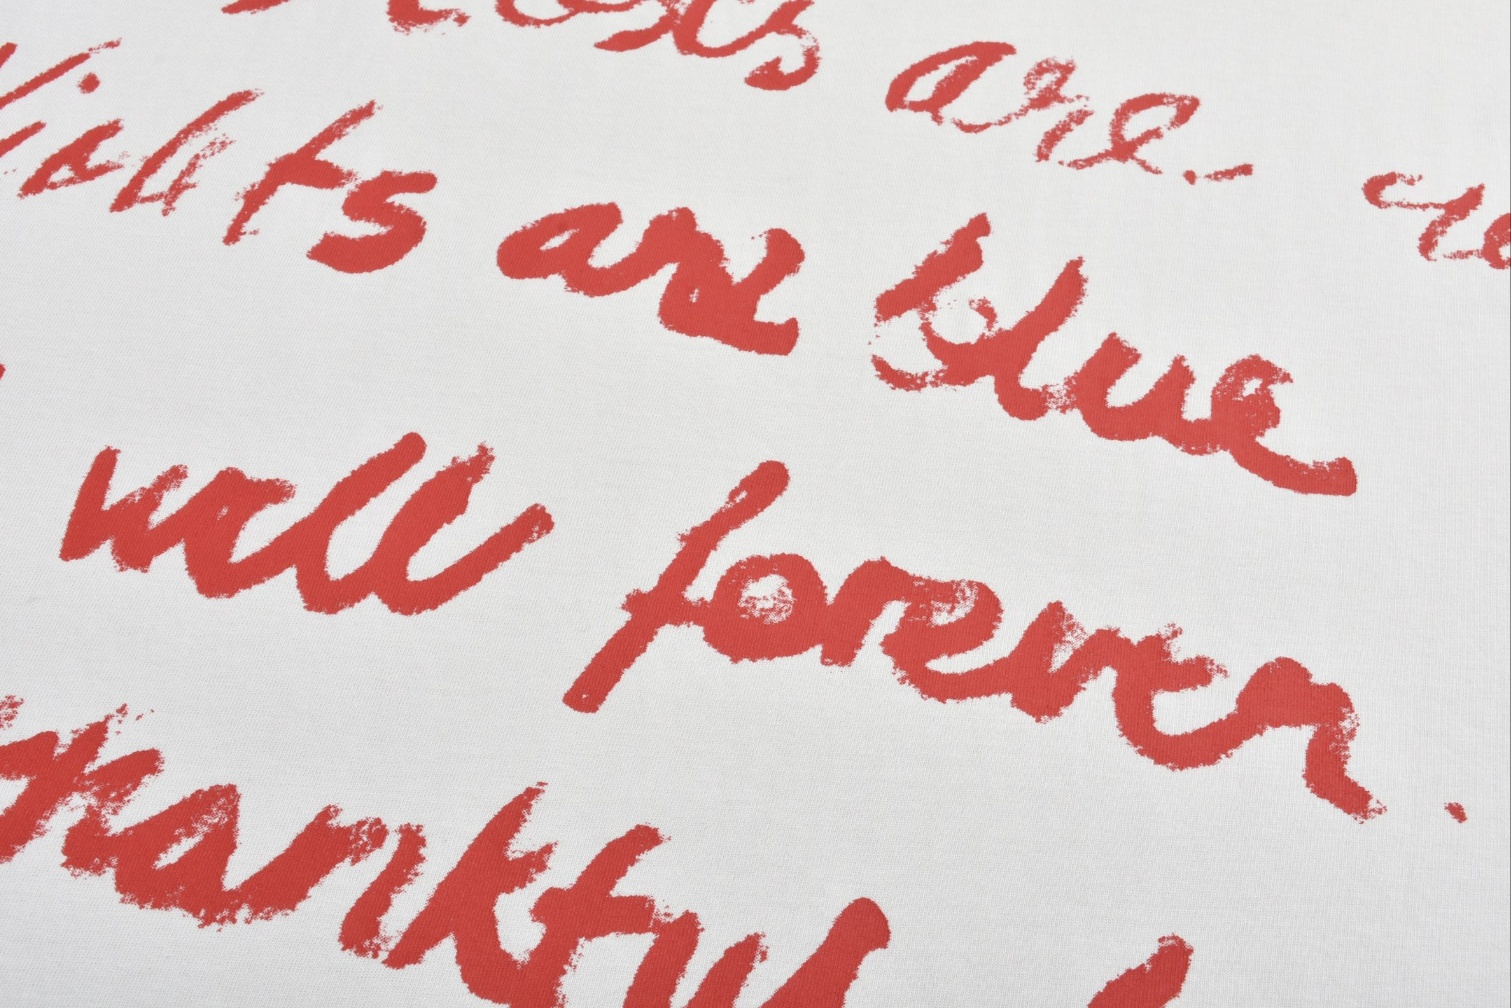 Roses are re
Violets are blue
will forever.
hankful